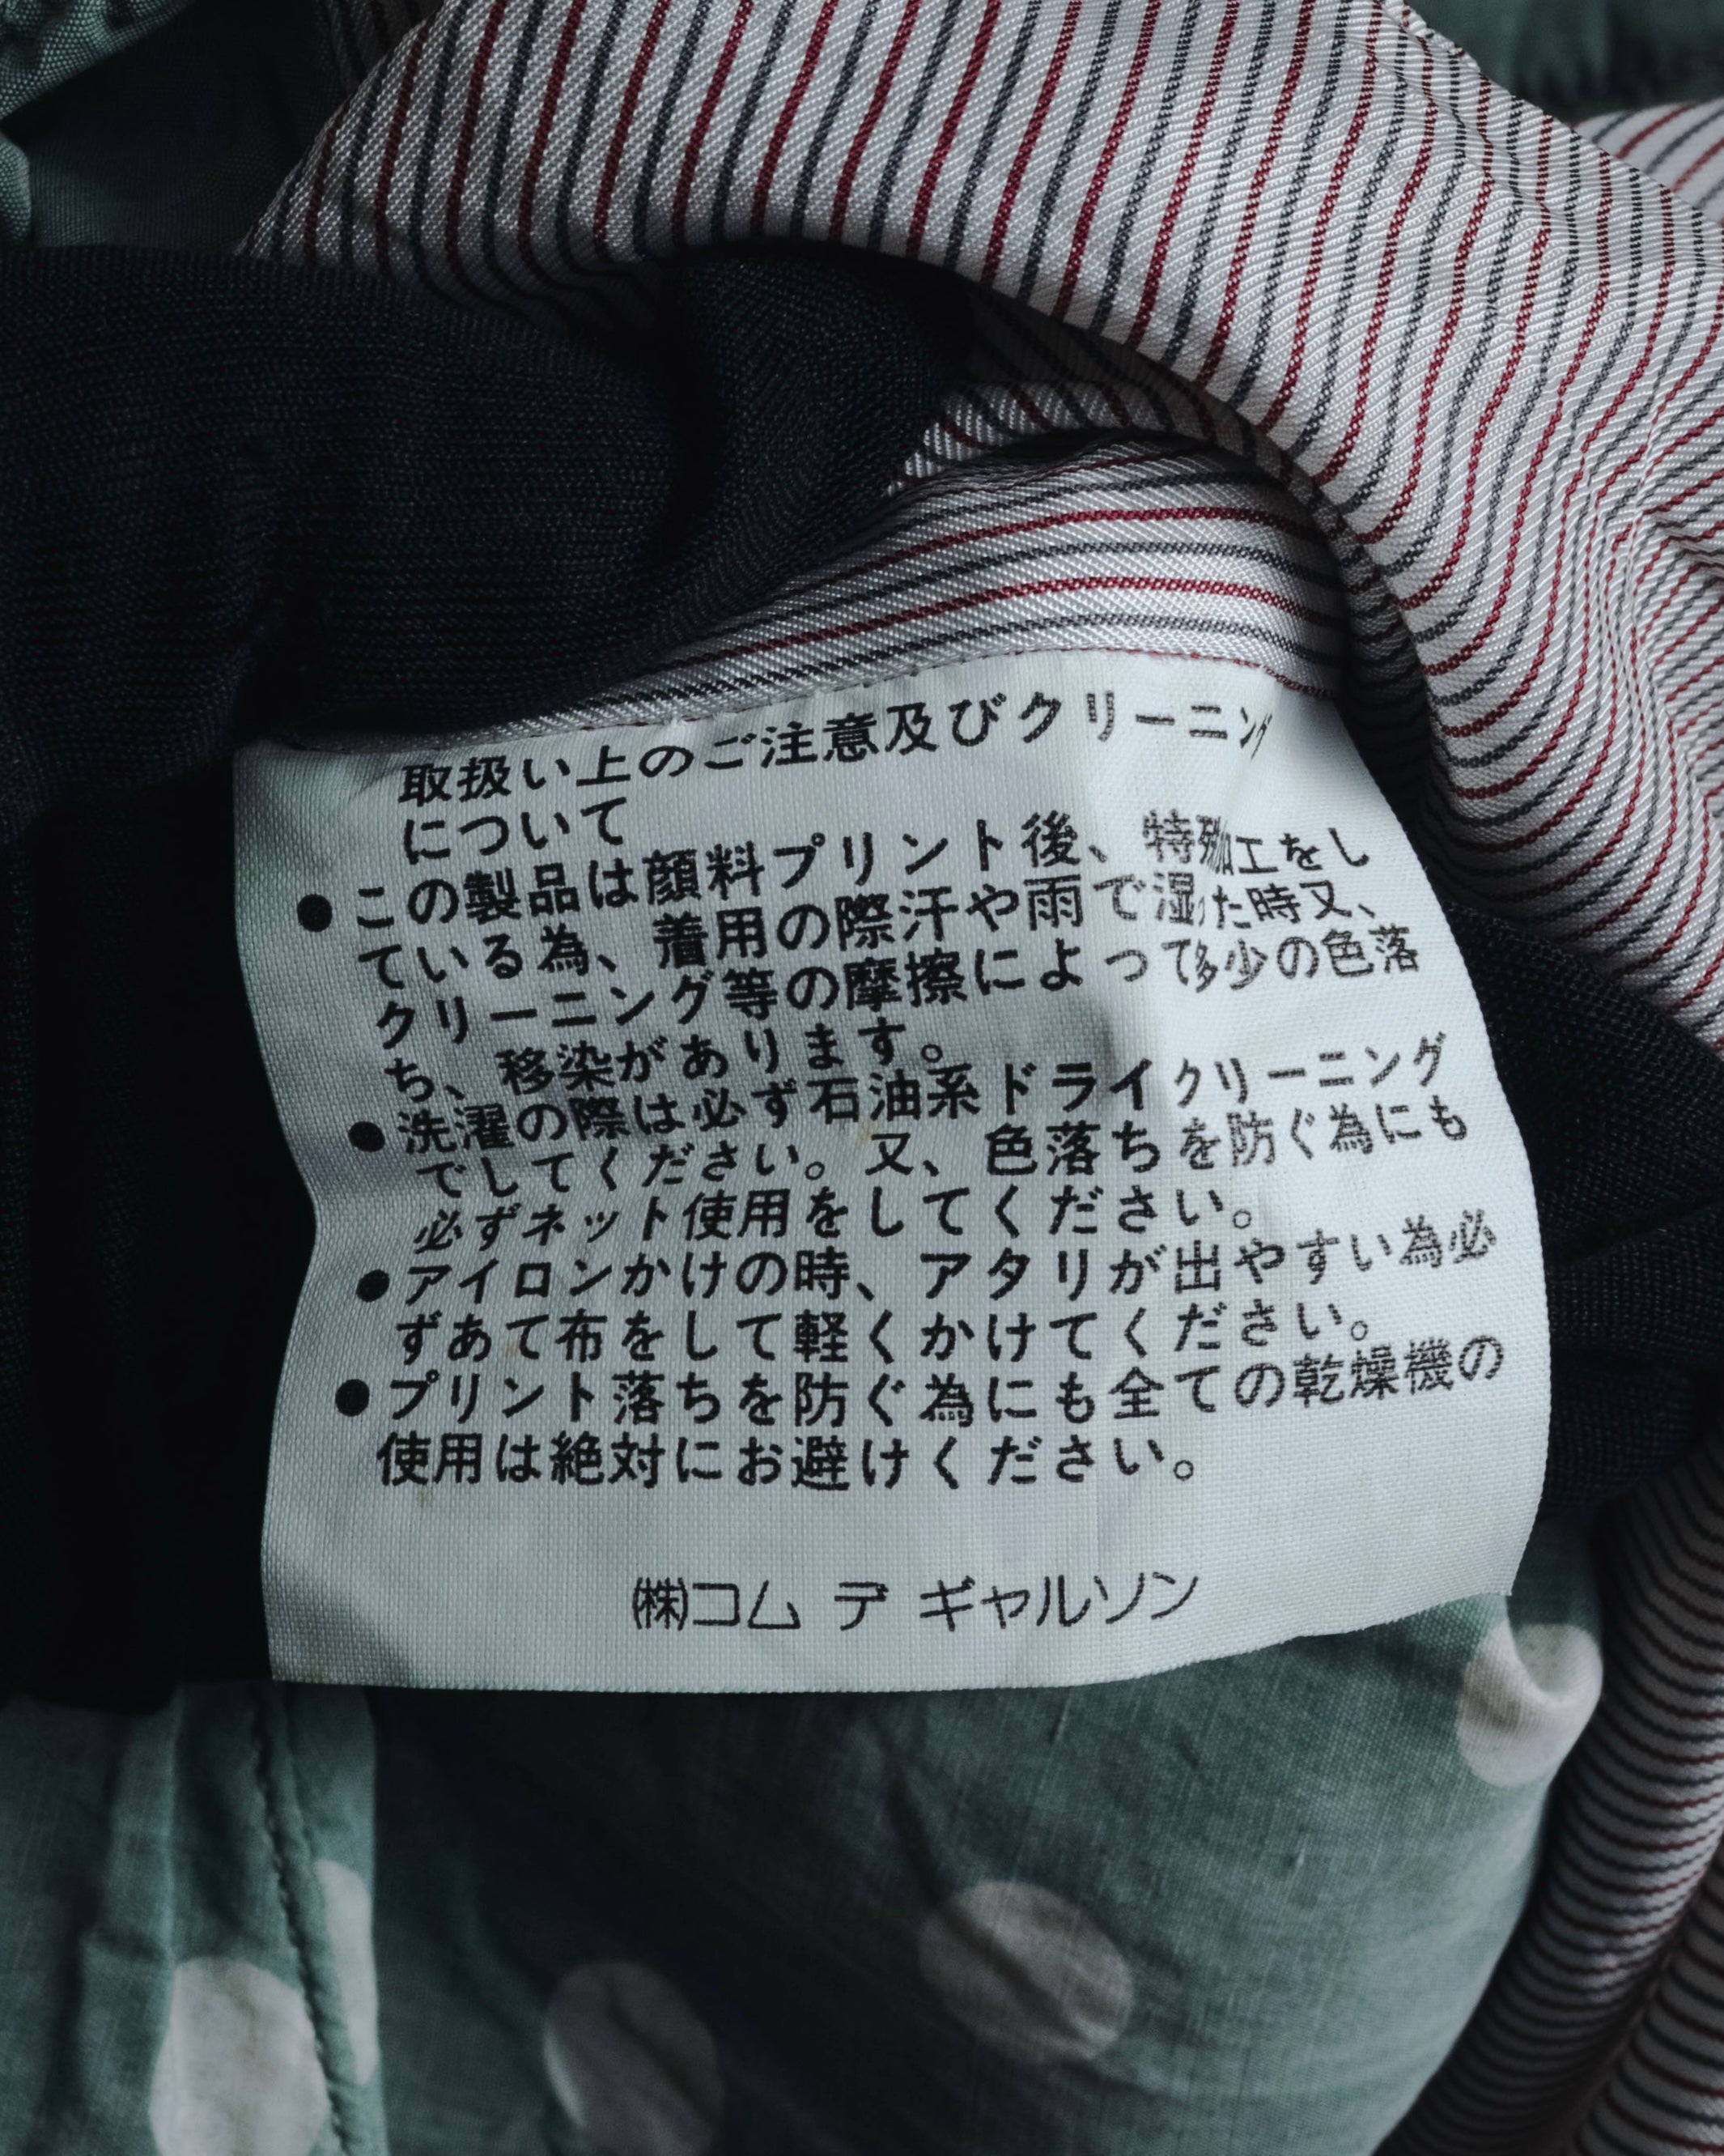 取扱い上のご注意及びクリーニング
について
●この製品は顔料プリント後、特殊加工をし
ている為、着用の際汗や雨で湿った時又、
クリーニング等の摩擦によって多少の色落
ち、移染があります。
●洗濯の際は必ず石油系ドライクリーニング
でしてください。又、色落ちを防ぐ為にも
必ずネット使用をしてください。
●アイロンかけの時、アタリが出やすい為必
ずあて布をして軽くかけてください。
●プリント落ちを防ぐ為にも全ての乾燥機の
使用は絶対にお避けください。
㈱コム デ ギャルソン